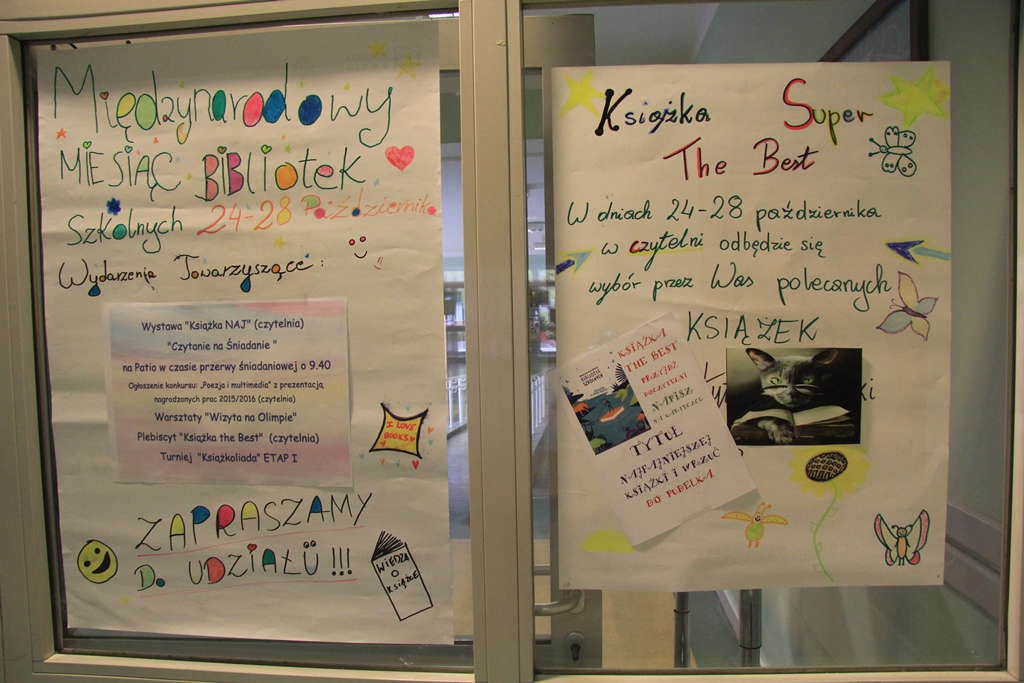 Międzynarodowy
MIESIĄC BIBLIOTEK
SZKOLNYCH 24-28 Października
Wydarzenia Towarzyszące:
Wystawa "Książka NAJ" (czytelnia)
"Czytanie na Śniadanie "
na Patio w czasie przerwy śniadaniowej o 9.40
Ogłoszenie konkursu: „Poezja i multimedia" z prezentacją
nagrodzonych prac 2015/2016 (czytelnia)
Warsztaty "Wizyta na Olimpie"
Plebiscyt "Książka the Best" (czytelnia)
Turniej "Książkoliada" ETAP I
I LOVE
BOOKS
ZAPRASZAMY
DO UDZIAŁU !!!
WIEDZA
O
KSIĄŻCE
Książka Super
The Best
W dniach 24-28 października
w czytelni odbędzie się
wybór przez Was polecanych
KSIĄŻEK
KSIĄŻKA
THE BEST
PRZYJDŹ
DO CZYTELNI
NAPISZ
NA KARTECZCE
TYTUŁ
NAJFAJNIEJSZEJ
KSIĄŻKI I WRZUĆ
DO PUDEŁKA